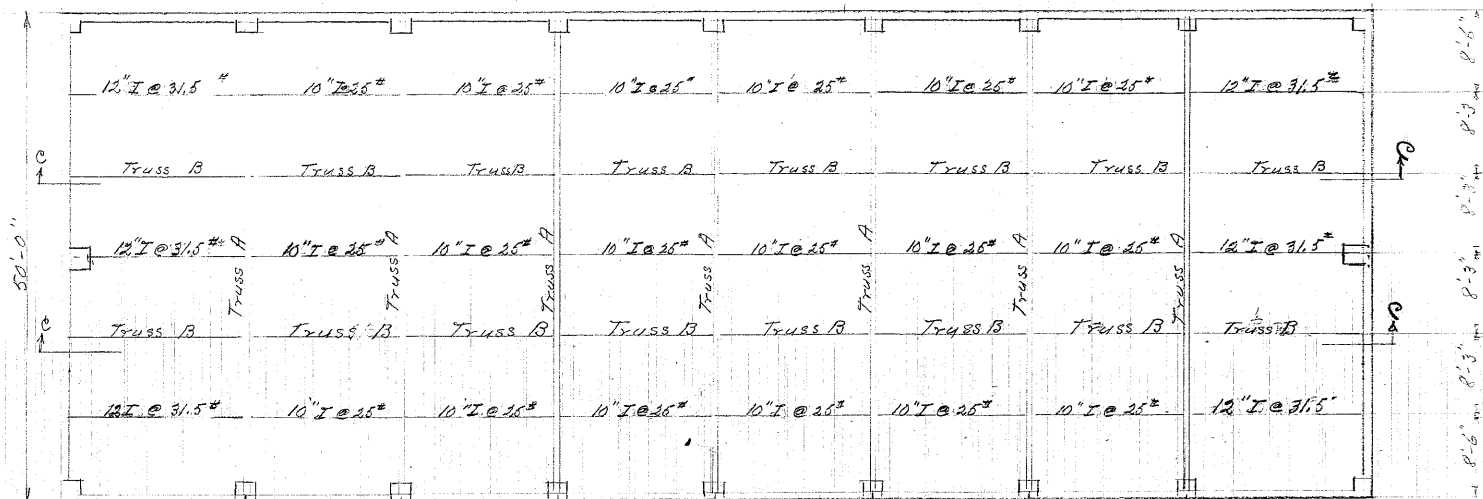 12"I @ 31.5 # 10"I@25# 10"I @ 25# 10"I @ 25# 10"I @ 25# 10"I @ 25# 10"I @ 25# 12"I @ 31.5#
C Truss B Truss B Truss B Truss B Truss B Truss B Truss B Truss B C
12"I @ 31.5# 10"I @ 25# 10"I @ 25# 10"I @ 25# 10"I @ 25# 10"I @ 25# 10"I @ 25# 12"I @ 31.5#
Truss A Truss A Truss A Truss A Truss A Truss A Truss A
C Truss B Truss B Truss B Truss B Truss B Truss B Truss B Truss B C
12I @ 31.5# 10"I @ 25# 10"I @ 25# 10"I @ 25# 10"I @ 25# 10"I @ 25# 10"I @ 25# 12"I @ 31.5'
50'-0"
8'-6"
8'-3"
8'-3"
8'-3"
8'-3"
8'-6"